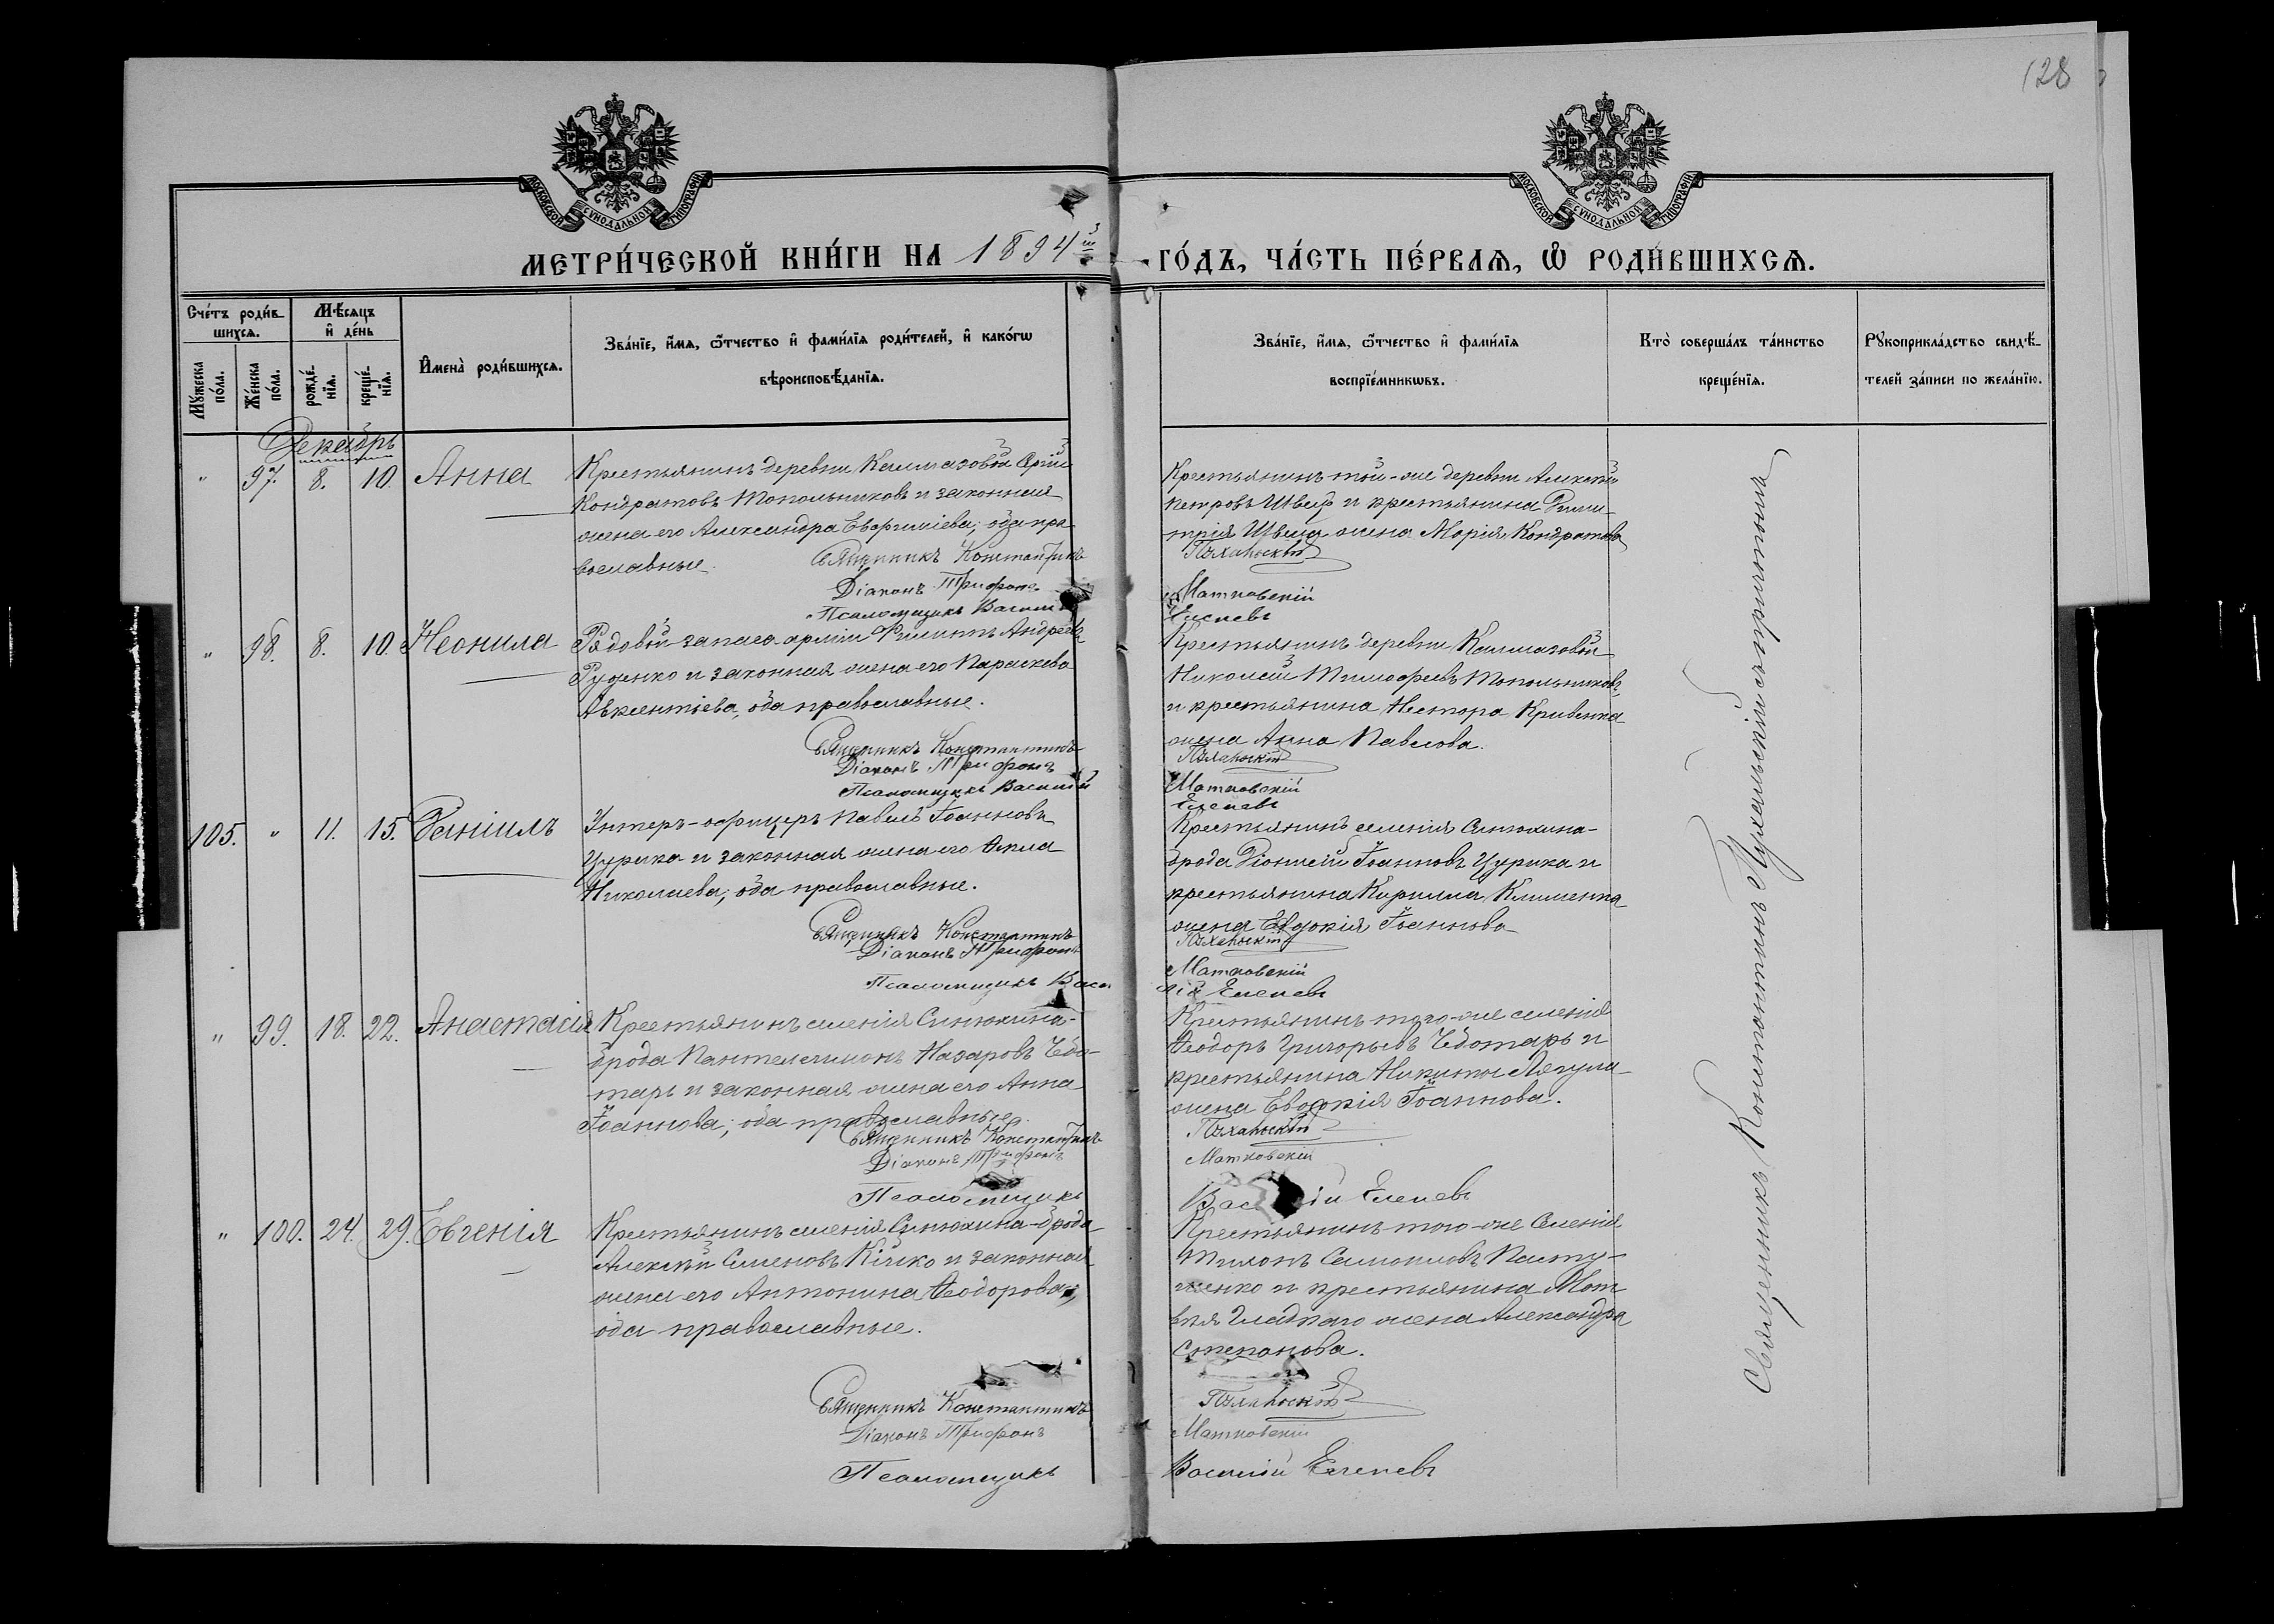 128
МОСКОВСКОЙ СУНОДАЛЬНОЙ ТИПОГРАФІИ
МОСКОВСКОЙ СУНОДАЛЬНОЙ ТИПОГРАФІИ
МЕТРИ́ЧЕСКОЙ КНИ́ГИ НА 1894й
ГО́ДЪ, ЧА́СТЬ ПЕ́РВАѦ, Ѡ РОДИ́ВШИХСѦ.
Сче́тъ роди́в-
шихсѧ.
Мꙋжеска по́ла.
Же́нска по́ла.
Мѣ́сѧцъ
и҆ де́нь
рожде́-
нїѧ.
креще́-
нїѧ.
И҆мена̀ роди́вшихсѧ.
Зва́нїе, и҆́мѧ, ѻ҆́тчество и҆ фами́лїѧ роди́телей, и҆ како́гѡ
вѣроисповѣ́данїѧ.
Зва́нїе, и҆́мѧ, ѻ҆́тчество и҆ фами́лїѧ
воспрїе́мникѡвъ.
Кто̀ соверша́лъ та́инство
креще́нїѧ.
Рꙋкоприкла́дство свидѣ́-
телей за́писи по жела́нїю.
Декабрь
" 97. 8. 10. Анна
Крестьянинъ деревни Калмазовой Сергій
Кондратовъ Топольниковъ и законная
жена его Александра Евфиміева; оба пра-
вославные.
Священникъ Константинъ
Діаконъ Трифонъ
Псаломщикъ Василій
Крестьянинъ той-же деревни Алексѣй
Петровъ Швецъ и крестьянина Дими-
трія Швеца жена Марія Кондратова
Матковскій
Елепевъ
" 98. 8. 10. Неонила
Рядовой запаса арміи Филиппъ Андреевъ
Руденко и законная жена его Параскева
Авксентіева, оба православные.
Священникъ Константинъ
Діаконъ Трифонъ
Псаломщикъ Василій
Крестьянинъ деревни Калмазовой
Николай Тимофеевъ Топольниковъ
и крестьянина Нестора Кривенка
жена Анна Павлова.
Матковскій
Елепевъ
105. " 11. 15. Даніилъ
Унтеръ-офицеръ Павелъ Іоанновъ
Цурика и законная жена его Ѳекла
Николаева; оба православные.
Священникъ Константинъ
Діаконъ Трифонъ
Псаломщикъ Васи
Крестьянинъ селенія Синюхина-
брода Діонисій Іоанновъ Цурика и
крестьянина Кирилла Клименка
жена Евдокія Іоаннова
Матковскій
лій Елепевъ
" 99. 18. 22. Анастасія
Крестьянинъ селенія Синюхина-
брода Пантелеимонъ Назаровъ Чебо-
тарь и законная жена его Анна
Іоаннова; оба православные.
Священникъ Константинъ
Діаконъ Трифонъ
Псаломщикъ
Крестьянинъ того-же селенія
Ѳеодоръ Григорьевъ Чеботарь и
крестьянина Никиты Лягула
жена Евдокія Іоаннова.
Матковскій
Василій Елепевъ
" 100. 24. 29. Евгенія
Крестьянинъ селенія Синюхина-брода
Алексѣй Семеновъ Кійко и законная
жена его Антонина Ѳеодорова,
оба православные.
Священникъ Константинъ
Діаконъ Трифонъ
Псаломщикъ
Крестьянинъ того-же селенія
Самоиловъ Пасту-
шенко и крестьянина Мат-
вея Гладкаго жена Александра
Степанова.
Матковскій
Василій Елепевъ
Священникъ Константинъ съ причтомъ